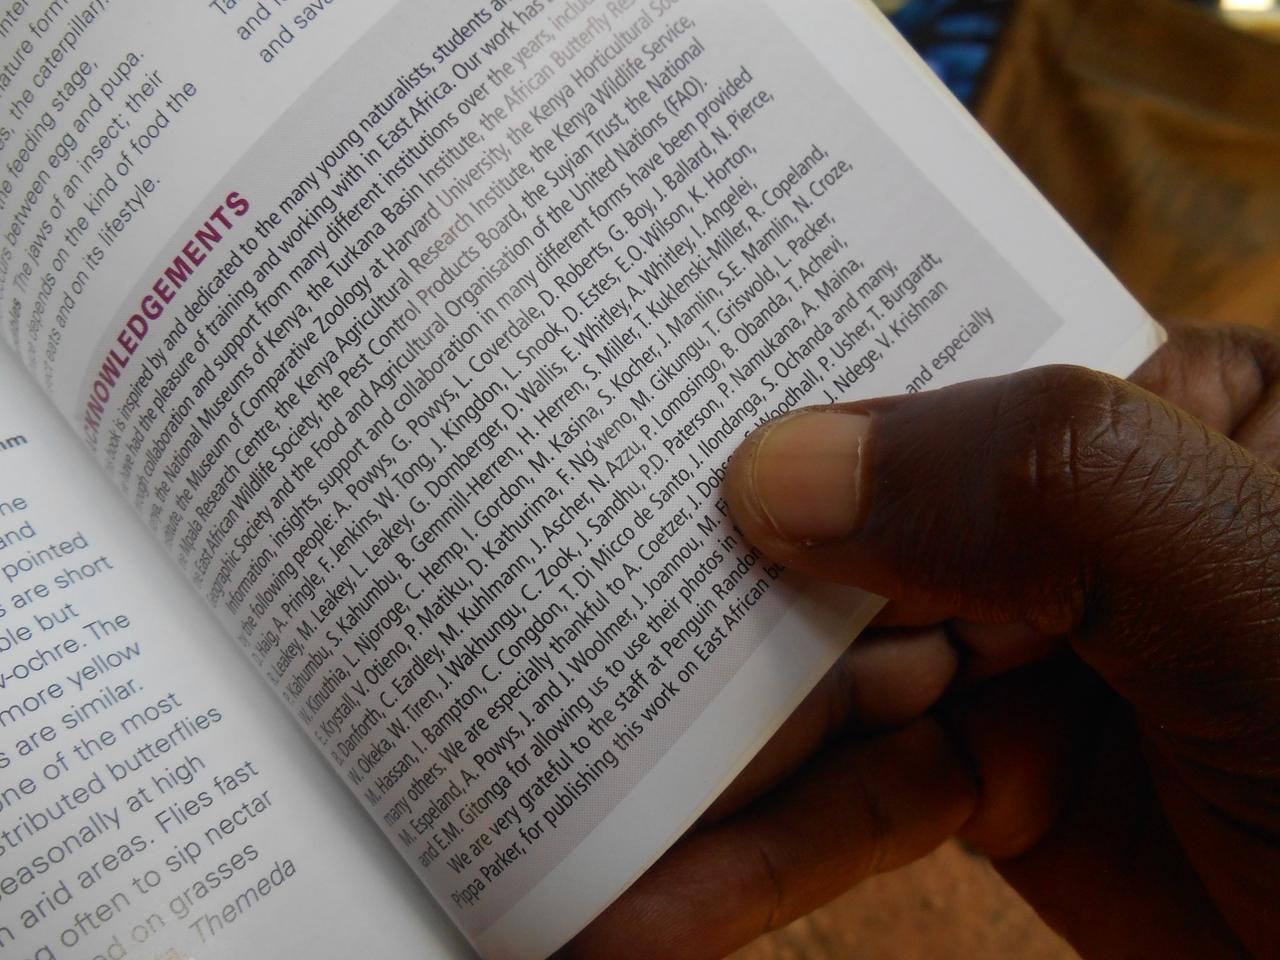 nature form
the caterpillar).
the feeding stage,
occurs between egg and pupa.
The jaws of an insect; their
depends on the kind of food the
eats and on its lifestyle.
and
and save
KNOWLEDGEMENTS
book is inspired by and dedicated to the many young naturalists, students
have had the pleasure of training and working with in East Africa. Our work has
collaboration and support from many different institutions over the years,
the National Museums of Kenya, the Turkana Basin Institute, the African Butterfly
the Museum of Comparative Zoology at Harvard University, the Kenya Horticultural
Mpala Research Centre, the Kenya Agricultural Research Institute, the Kenya Wildlife Service,
East African Wildlife Society, the Pest Control Products Board, the Suyian Trust, the National
Geographic Society and the Food and Agricultural Organisation of the United Nations (FAO).
Information, insights, support and collaboration in many different forms have been provided
by the following people: A. Powys, G. Powys, L. Coverdale, D. Roberts, G. Boy, J. Ballard, N. Pierce,
D. Haig, A. Pringle, F. Jenkins, W. Tong, J. Kingdon, L. Snook, D. Estes, E.O. Wilson, K. Horton,
R. Leakey, M. Leakey, L. Leakey, G. Domberger, D. Wallis, E. Whitley, A. Whitley, I. Angelei,
P. Kahumbu, S. Kahumbu, B. Gemmill-Herren, H. Herren, S. Miller, T. Kuklenski-Miller, R. Copeland,
W. Kinuthia, L. Njoroge, C. Hemp, I. Gordon, M. Kasina, S. Kocher, J. Mamlin, S.E. Mamlin, N. Croze,
E. Krystall, V. Otieno, P. Matiku, D. Kathurima, F. Ng'weno, M. Gikungu, T. Griswold, L. Packer,
B. Danforth, C. Eardley, M. Kuhlmann, J. Ascher, N. Azzu, P. Lomosingo, B. Obanda, T. Achevi,
W. Okeka, W. Tiren, J. Wakhungu, C. Zook, J. Sandhu, P.D. Paterson, P. Namukana, A. Maina,
M. Hassan, I. Bampton, C. Congdon, T. Di Micco de Santo, J. Ilondanga, S. Ochanda and many,
many others. We are especially thankful to A. Coetzer, J. Woodhall, P. Usher, T. Burgardt,
M. Espeland, A. Powys, J. and J. Woolmer, J. Joannou, M. J. Ndege, V. Krishnan
and E.M. Gitonga for allowing us to use their photos in
We are very grateful to the staff at Penguin Random and especially
Pippa Parker, for publishing this work on East African
mm
and
pointed
are short
but
ochre. The
more yellow
are similar.
one of the most
butterflies
seasonally at high
arid areas. Flies fast
often to sip nectar
on grasses
Themeda